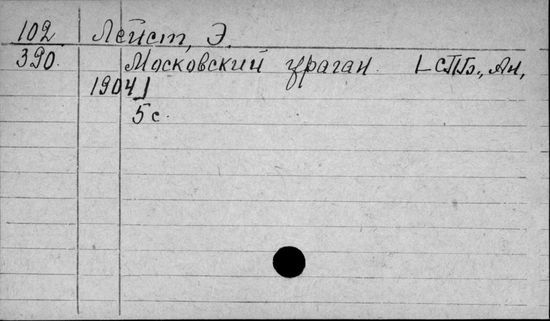 102 Лейст, Э.
390. Московский ураган. [СПб., Ан,
1904]
5 с.